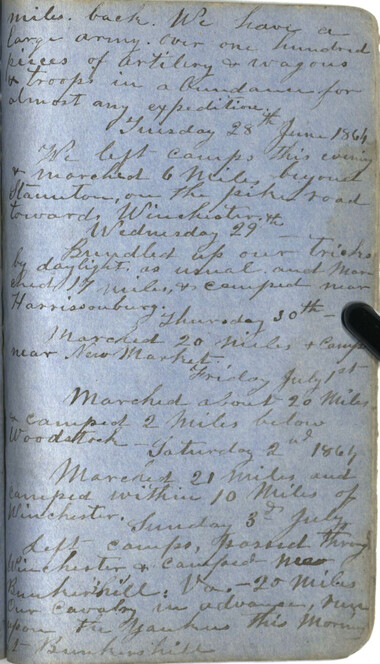 miles. back. We have a
large army. over one hundred
pieces of Artilery & wagons
& troops in abundance for
almost any expedition.
Tuesday 28th June 1864
We left camps this evening
& marched 6 Miles beyond
Staunton, on the pike road
towards Winchester.
Wednesday 29th
Bundled up our tricks
by daylight. as usual and Mar-
ched 17 miles, & camped near
Harrissonburg.
Thursday 30th -
Marched 20 miles & Camp
near New Market.
Friday July 1st
Marched about 20 Miles
& camped 2 Miles below
Woodstock -
Saturday 2nd 1864
Marched 21 Miles and
camped within 10 Miles of
Winchester.
Sunday 3rd July
Left camps, passed through
Winchester & camped near
Bunkershill. Va. - 20 Miles
Our Cavalry in advance,
upon the Yankees this Morning
at Bunkershill